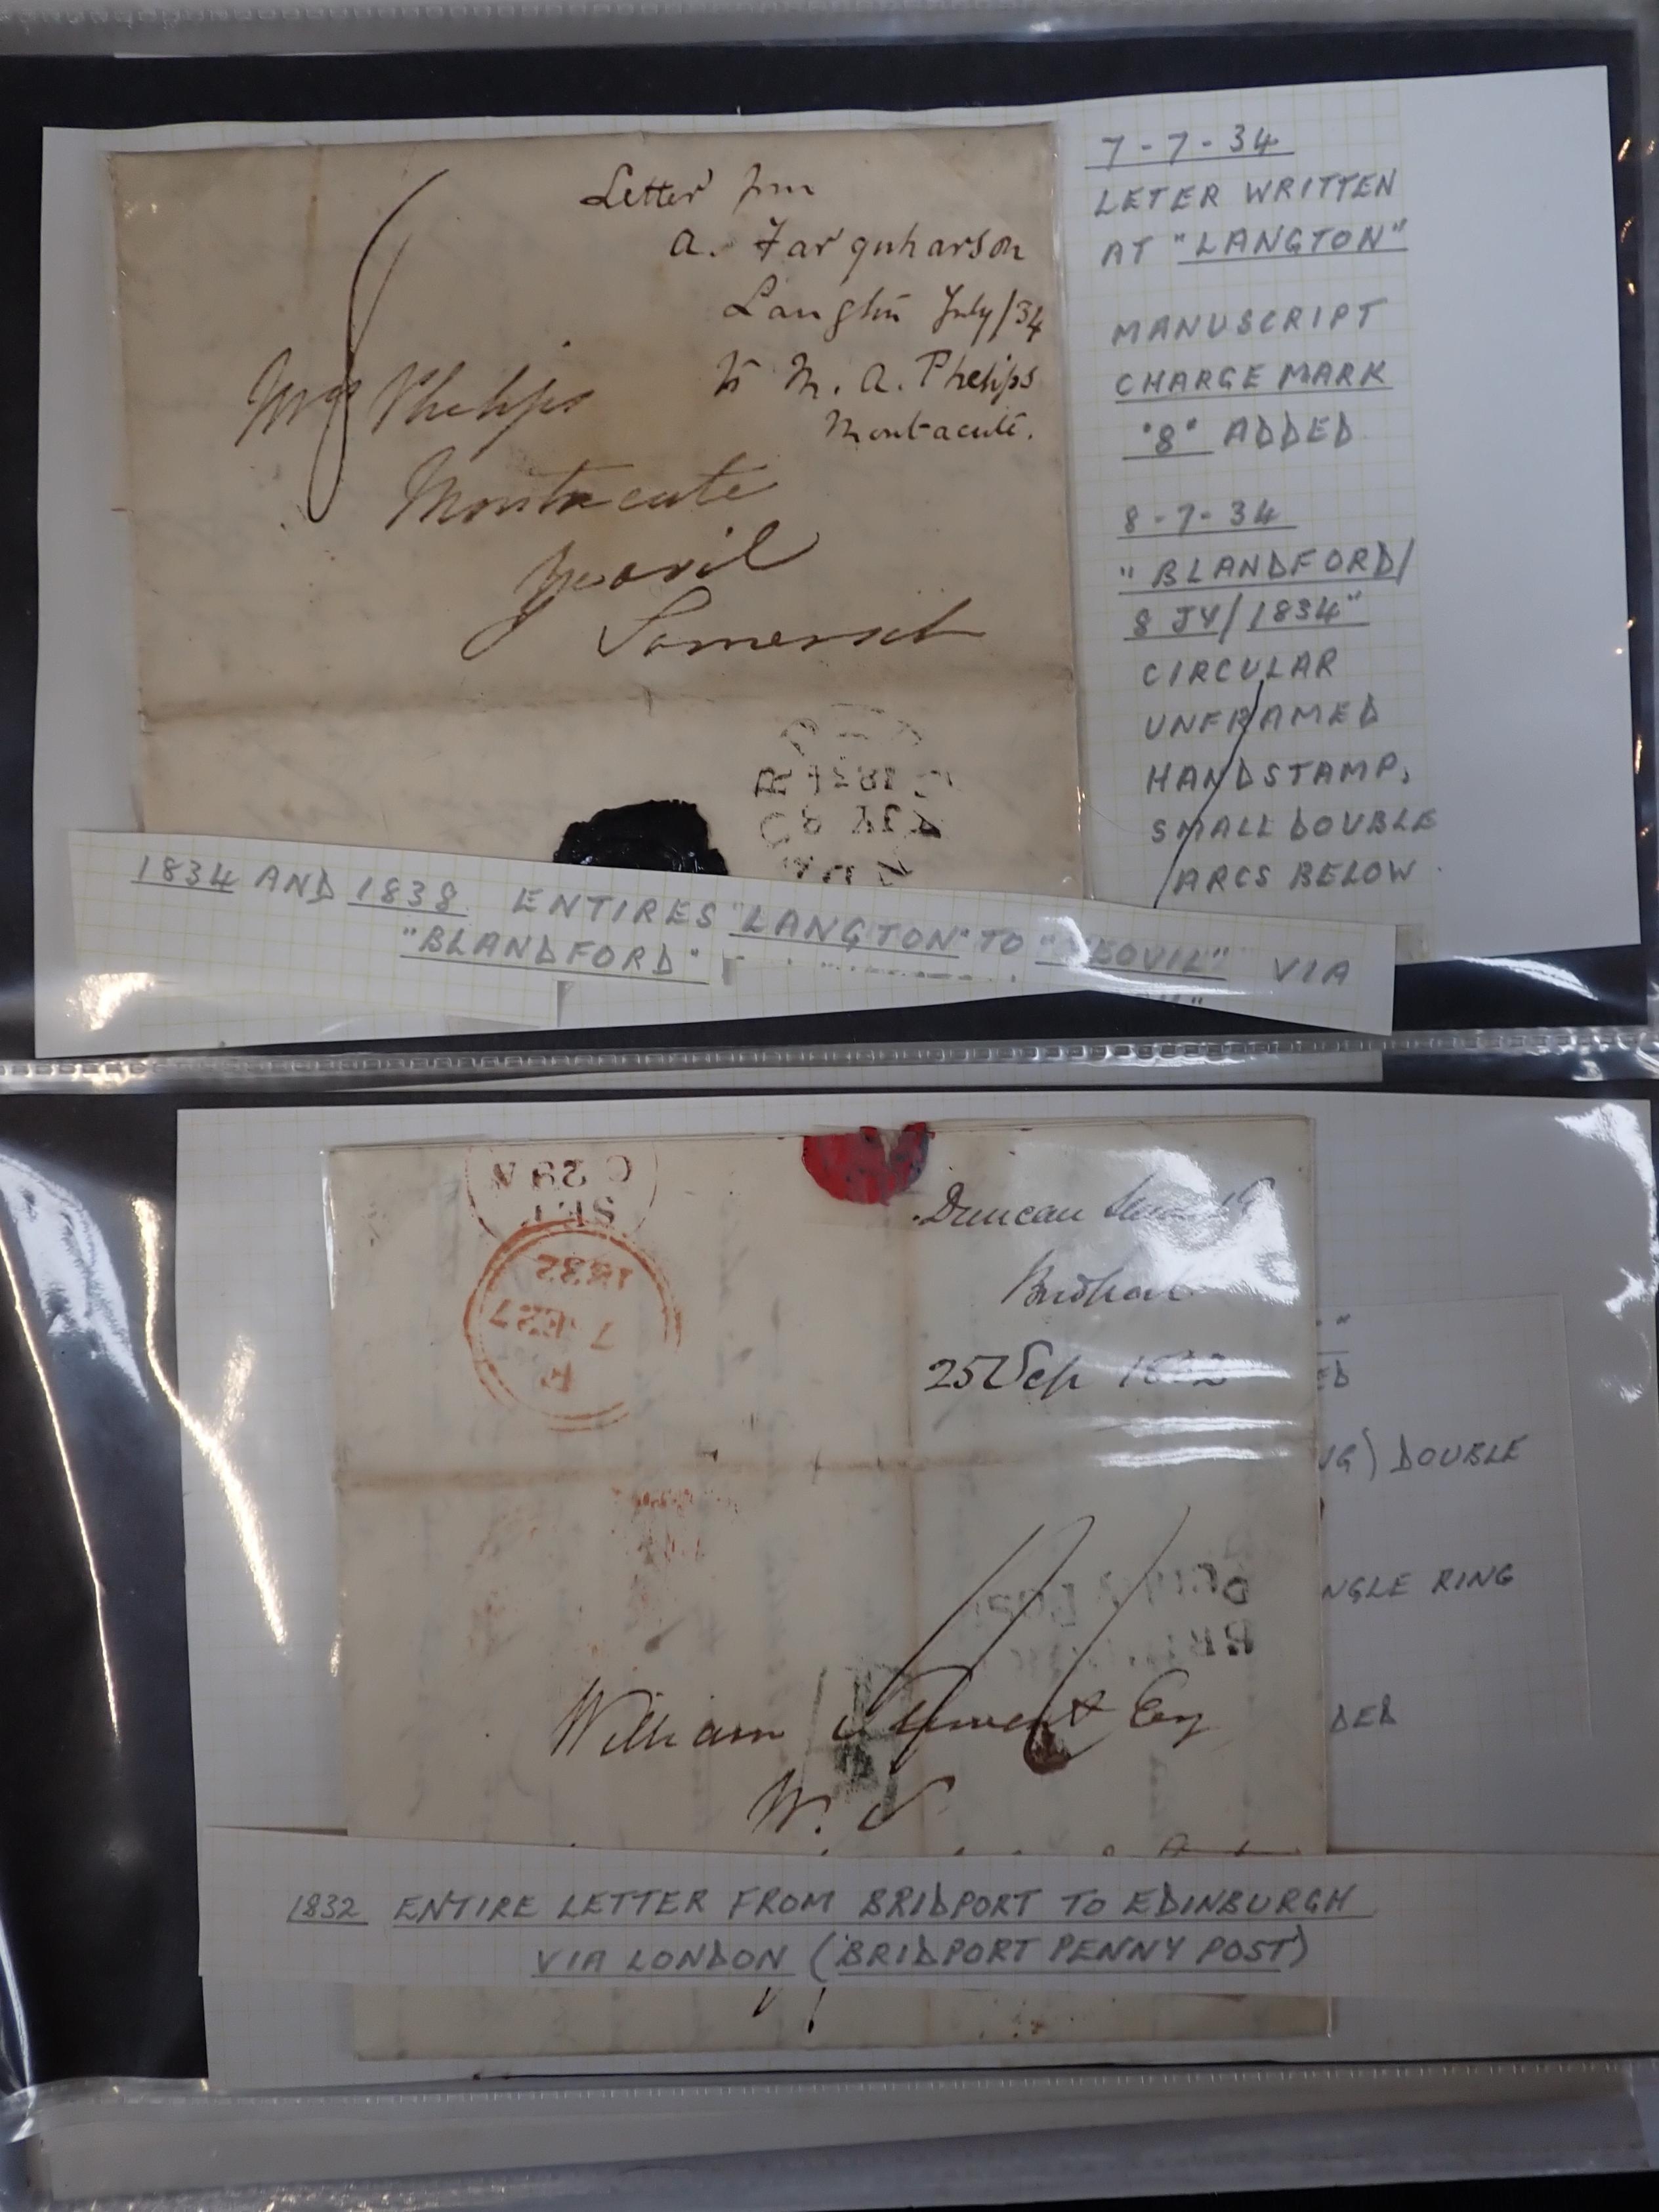 Letter from
A. Farquharson
Langton July/34
to M. A. Phelips
Montacute.
8
Mrs Phelips
Montacute
Yeovil
Somerset
BLANDFORD
JY 8
1834
7-7-34
LETER WRITTEN
AT "LANGTON"
MANUSCRIPT
CHARGE MARK
"8" ADDED
8-7-34
"BLANDFORD/
8 JY/1834"
CIRCULAR
UNFRAMED
HANDSTAMP,
SMALL DOUBLE
ARCS BELOW
1834 AND 1838 ENTIRES "LANGTON" TO "YEOVIL" VIA
"BLANDFORD"
C 29 A
1832
Duncan
Bridport
25 Sep 1832
ED
NG) DOUBLE
NGLE RING
DED
William Esq
W. S
1832 ENTIRE LETTER FROM BRIDPORT TO EDINBURGH
VIA LONDON (BRIDPORT PENNY POST)